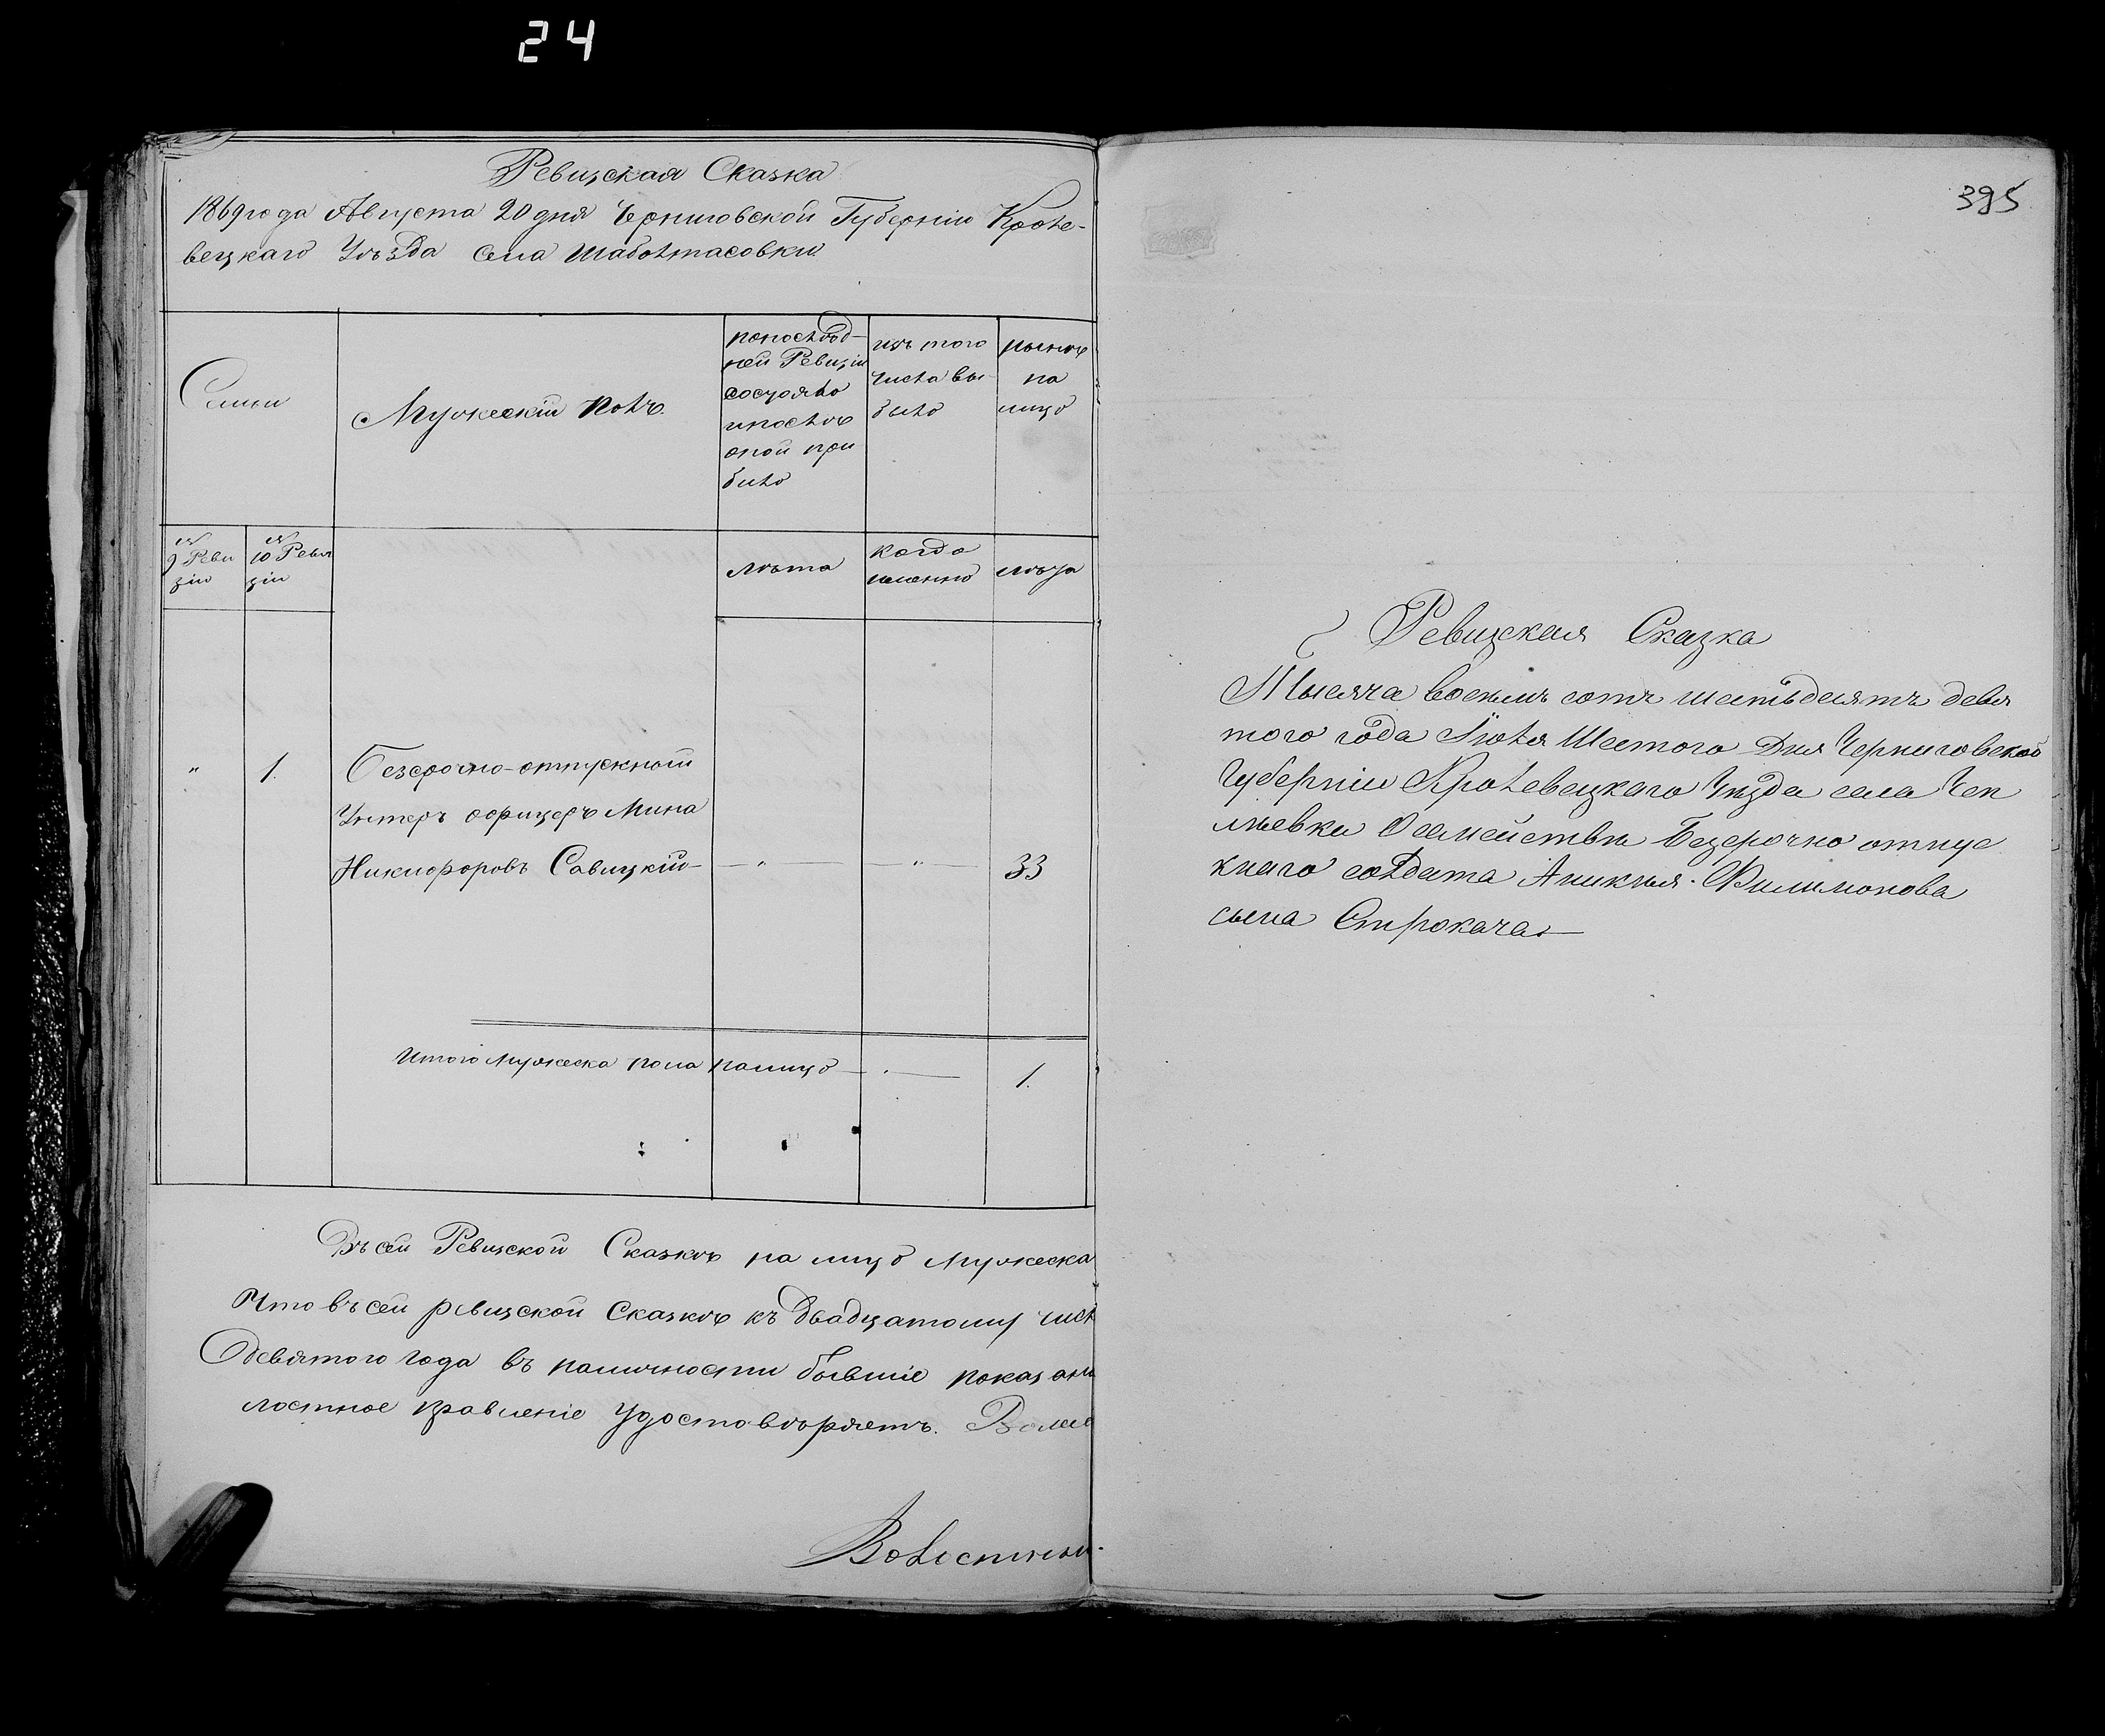 24
Ревизская Сказка
1869 года Августа 20 дня Черниговской Губерніи Кроле-
вецкаго Уѣзда села Шаболтасовки
Семьи
Мужескій полъ.
попослѣд-
ней Ревизіи
состояло
ипослѣ
оной при
было
изъ того
числа вы-
было
нынѣ
на
лицо
9 Реви
зіи
10 Реви
зіи
лѣта
когда
именно
лѣта
" 1. Безсрочно-отпускной
Унтеръ офицеръ Мина
Никифоровъ Савицкій — " — " — 33
Итого мужеска пола налицо — 1.
Въ сей Ревизской Сказкѣ на лицо Мужеска
Что въ сей ревизской Сказкѣ къ двадцатому числ
девятого года въ наличности бывшіе показаны
лостное правленіе удостовѣряетъ.
Волостный
395
Ревизская Сказка
Тысяча восемь сотъ шестьдесятъ девя
того года Іюля Шестого Дня Черниговской
Губерніи Кролевецкаго Уѣзда села Чеп
лѣевки О семействѣ Безсрочно отпус
кнаго солдата Аникѣя Филимонова
сына Строкача —